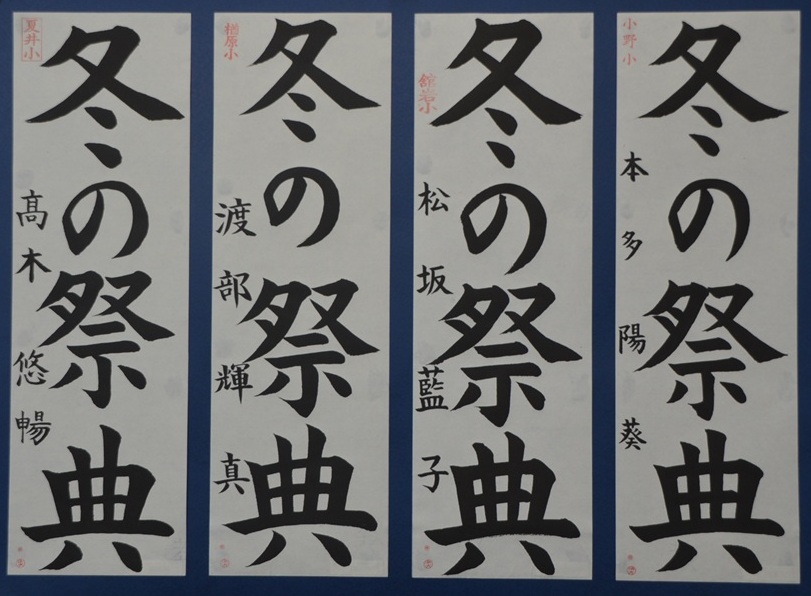 夏井小
冬の祭典
髙木悠暢
楢原小
冬の祭典
渡部輝真
舘岩小
冬の祭典
松坂藍子
小野小
冬の祭典
本多陽葵